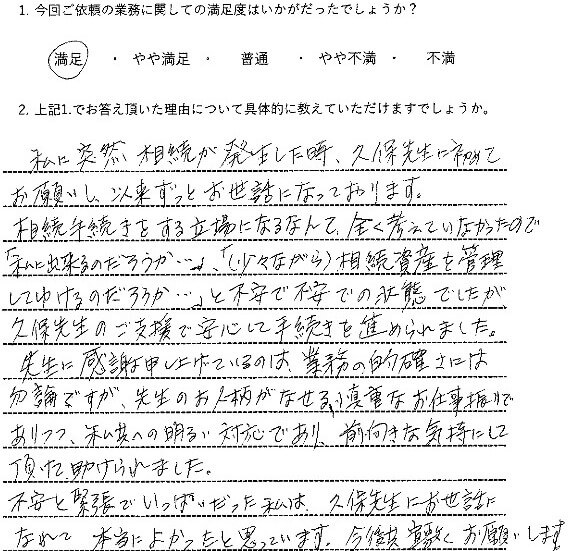 1. 今回ご依頼の業務に関しての満足度はいかがだったでしょうか？
満足 ・ やや満足 ・ 普通 ・ やや不満 ・ 不満
2. 上記1.でお答え頂いた理由について具体的に教えていただけますでしょうか。
私に突然、相続が発生した時、久保先生に初めて
お願いし、以来ずっとお世話になっております。
相続手続きをする立場になるなんて、全く考えていなかったので
「私に出来るのだろうか…」、「(少々ながら)相続資産を管理
してゆけるのだろうか…」と不安で不安での状態でしたが、
久保先生のご支援で安心して手続きを進められました。
先生に感謝申し上げているのは、業務の的確さには
勿論ですが、先生のお人柄がなせる、慎重なお仕事振りで
ありつつ、私共への明るい対応であり、前向きな気持にして
頂だ助けられました。
不安と緊張でいっぱいだった私は、久保先生にお世話に
なれて 本当によかったと思っています。今後共 宜敷くお願いします